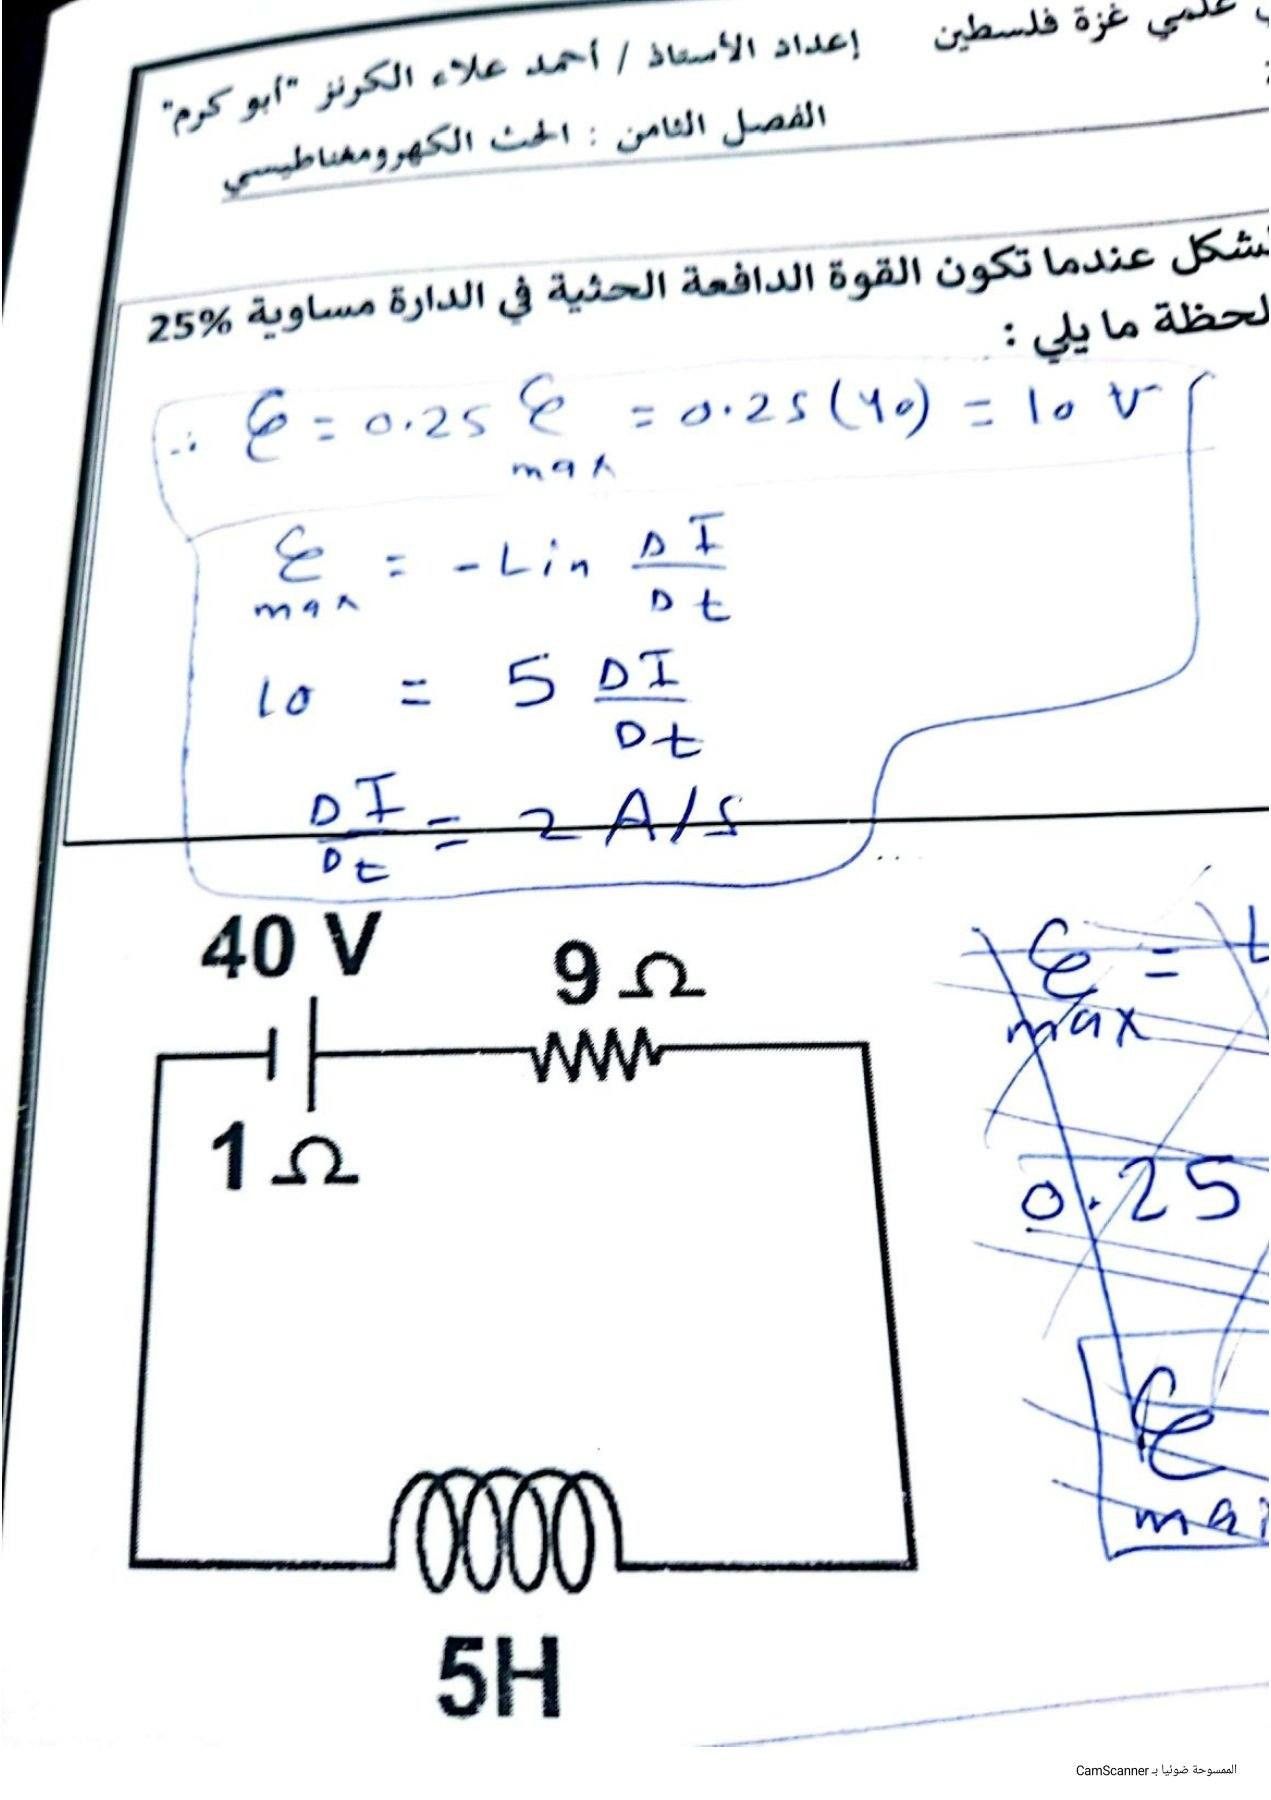 علمي غزة فلسطين إعداد الأستاذ / أحمد علاء الكرنز "أبو كرم"
الفصل الثامن : الحث الكهرومغناطيسي
لشكل عندما تكون القوة الدافعة الحثية في الدارة مساوية 25%
لحظة ما يلي :
∴ ε = 0.25 ε max = 0.25 (40) = 10 V
ε max = - Lin ΔI / Δt
10 = 5 ΔI / Δt
ΔI / Δt = 2 A/s
40 V
9 Ω
1 Ω
ε max = L
0.25
ε
5H
الممسوحة ضوئيا بـ CamScanner